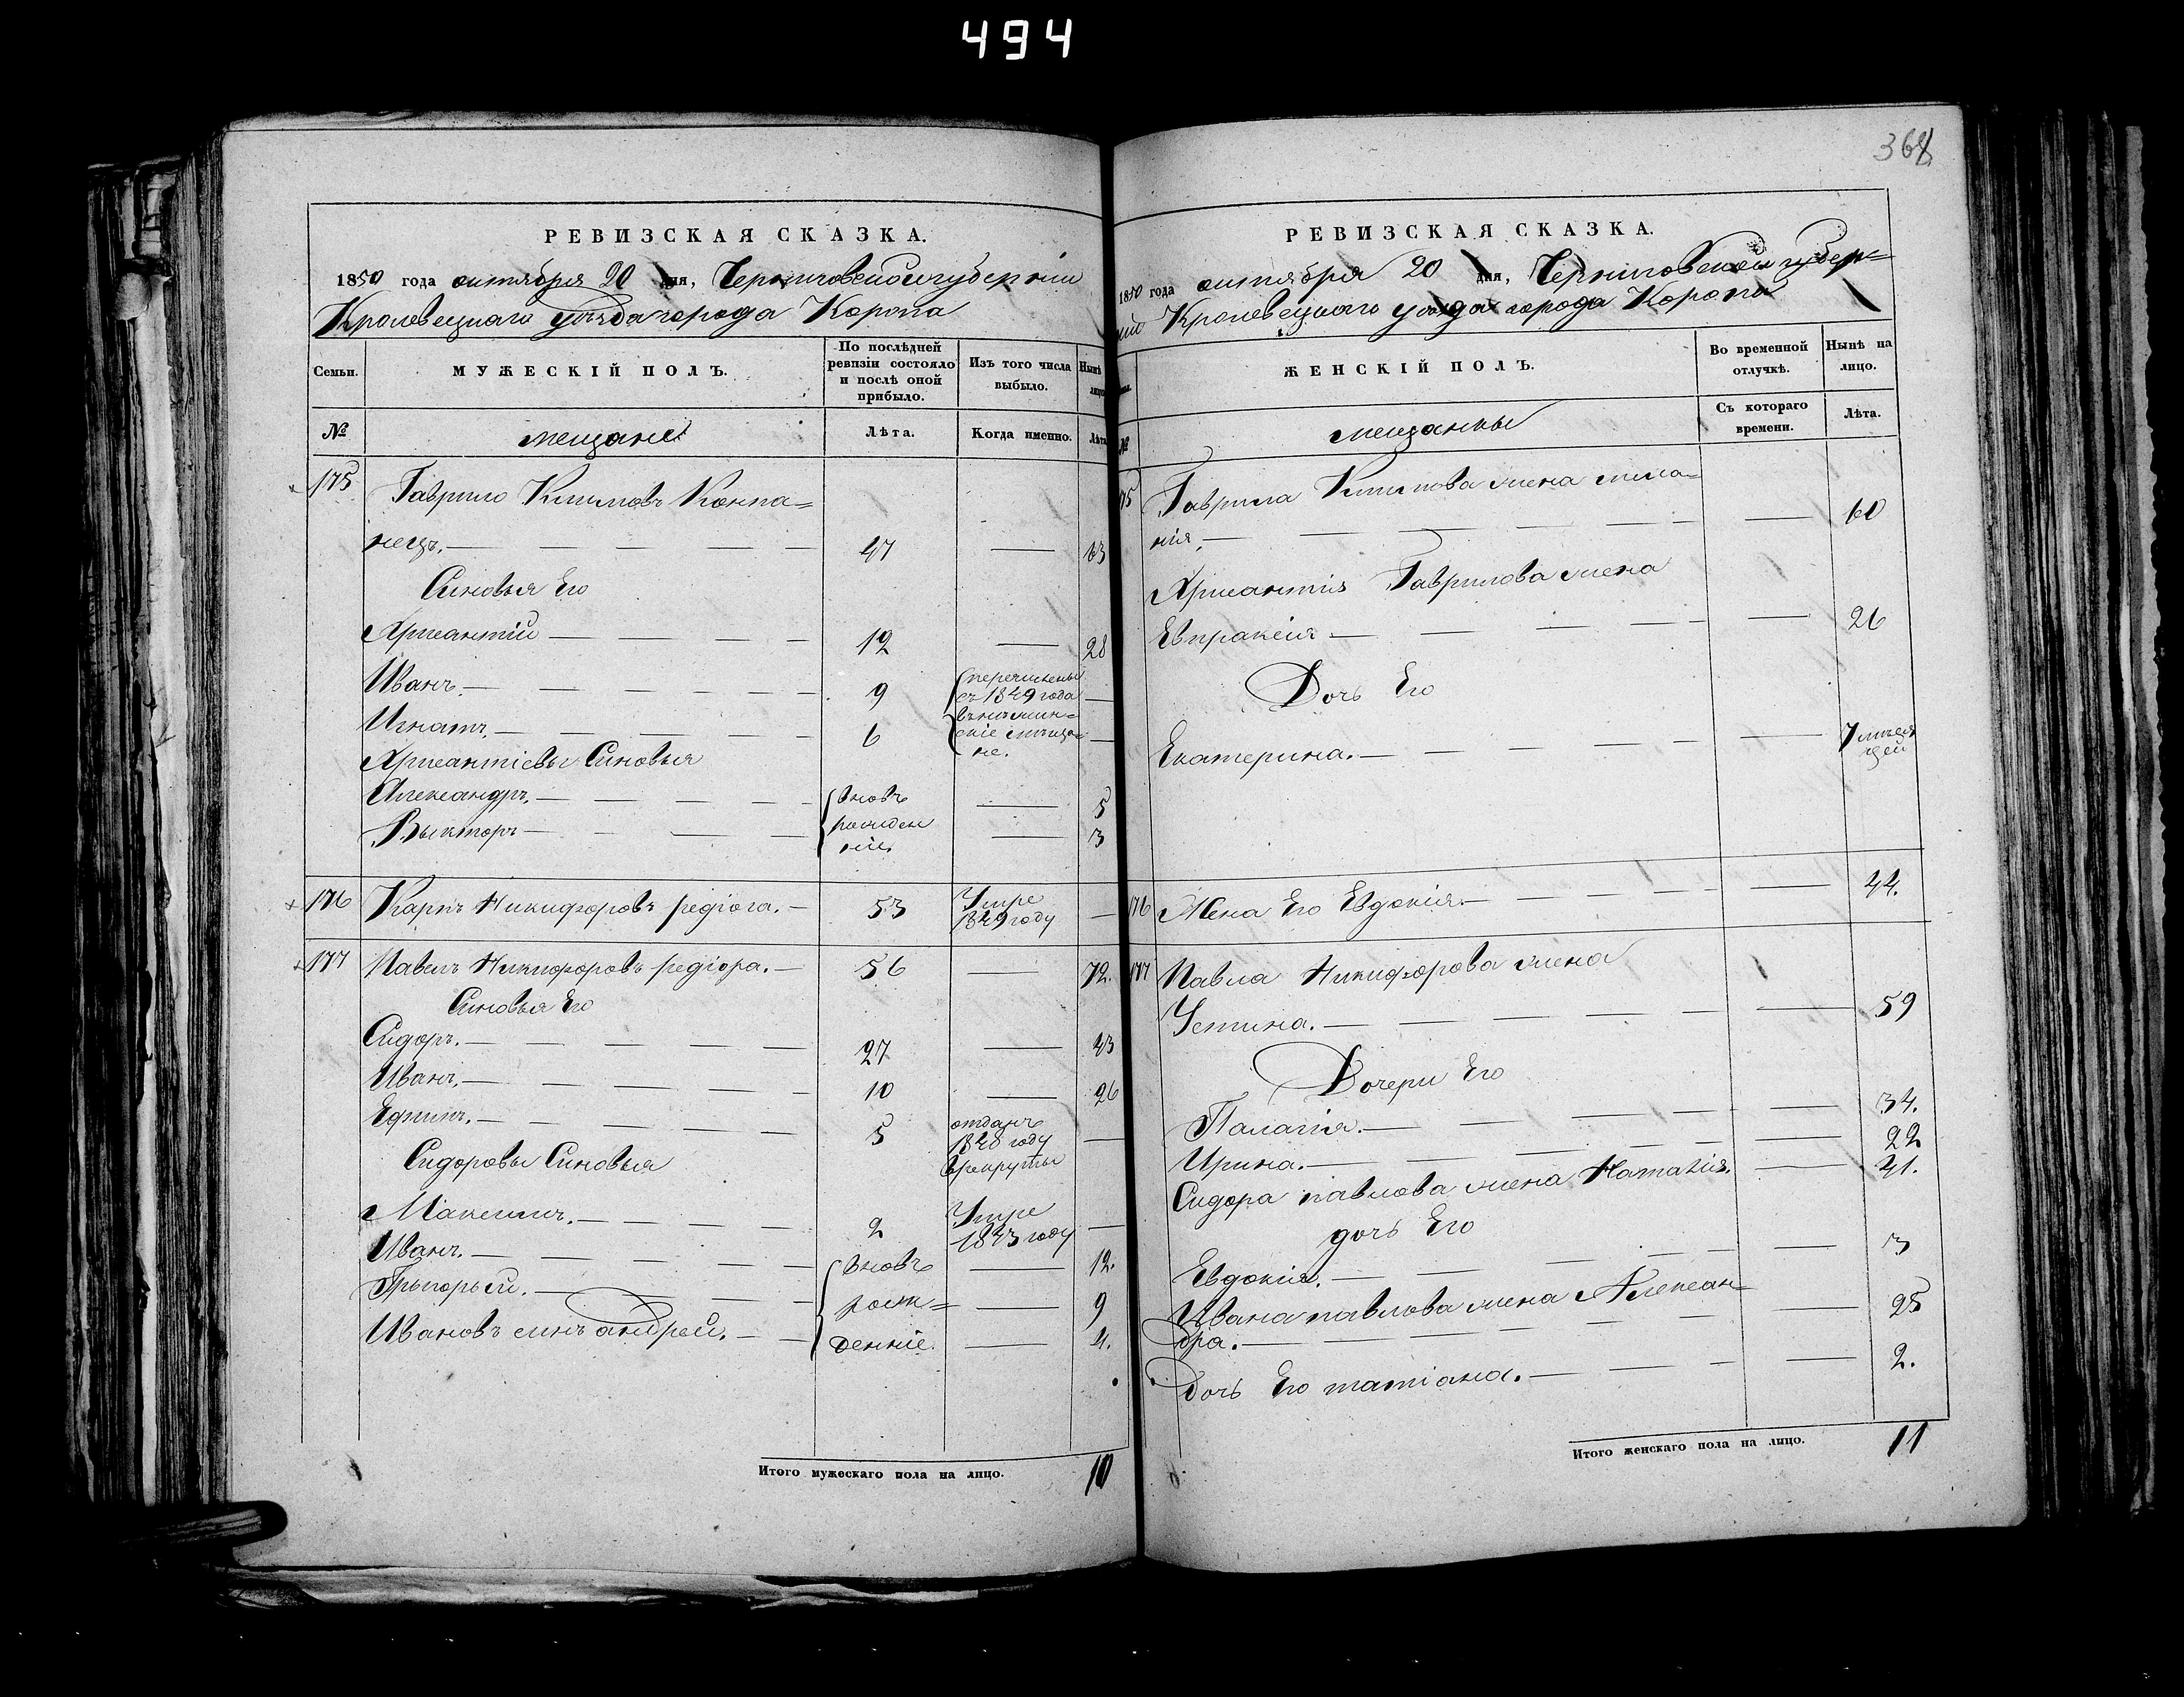 494
368
РЕВИЗСКАЯ СКАЗКА.
1850 года октября 20 дня, Черниговской губерніи
Кролевецкаго уѣзда города Коропа
Семьи.
МУЖЕСКІЙ ПОЛЪ.
По послѣдней ревизіи состояло и послѣ оной прибыло.
Изъ того числа выбыло.
Нынѣ
лицо
№
мещане
Лѣта.
Когда именно.
Лѣта
175 Гаврило Климовъ Компа=
нецъ. 47 — 63
Синовья Его
Армантій — 12 — 28
Иванъ. 9 перечислены
съ 1849 года —
Игнатъ. 6
въ
скіе мѣща=
не. —
Синовья
Александръ. вновь — 5
Выкторъ рожден
ніи — 3
176 Карпъ Никифоровъ 53 Умре
1849 году —
177 Павелъ Никифоровъ 56 — 72.
Синовья Его
Сидоръ. 27 — 43
Иванъ. 10 — 26
Ефимъ. 5 отданъ
1840 году
врекруты —
Сидоровы Синовья
Максимъ. 2 Умре
1843 году —
Иванъ. вновь — 12.
Грыгорый. рож= — 9
Ивановъ синъ андрей. денніе. — 4.
Итого мужескаго пола на лицо. 10
РЕВИЗСКАЯ СКАЗКА.
1850 года октября 20 дня, Черниговской губер=
ніи Кролевецкаго уѣзда города Коропа
ЖЕНСКІЙ ПОЛЪ.
Во временной отлучкѣ.
Нынѣ на лицо.
№
мещанкы
Съ котораго времени.
Лѣта.
75 Гаврила Климова жена мела=
нія. — 60
Гаврилова жена
Евпраксія — 26
Дочь Его
Екатерина. — 7 меся
цей
176 Жена Его Евдокія. — 44.
177 Павла Никифорова жена
Устина. — 59
Дочери Его
Палагія. — 34.
Ирина. — 22
Сидора павлова жена Наталія. — 41.
дочь Его
Евдокія. — 3
Ивана павлова жена Алексан=
дра. — 25
Дочь Его татіана. — 2.
Итого женскаго пола на лицо. 11